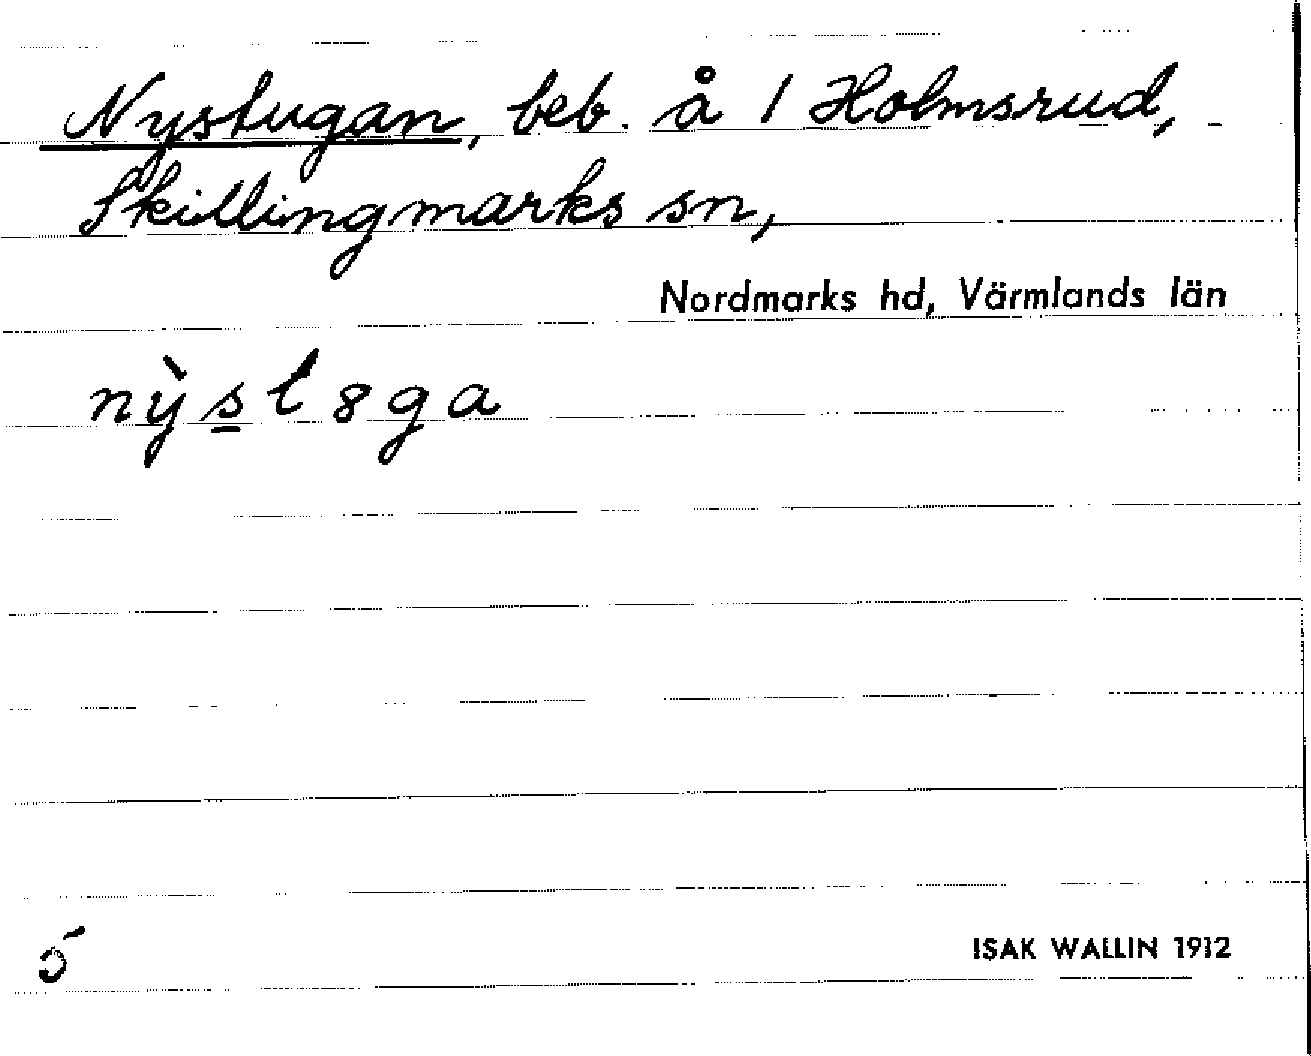 Nystugan, beb. å 1 Holmsrud,
Skillingmarks sn,
Nordmarks hd, Värmlands län
nỳst8ga
5
ISAK WALLIN 1912